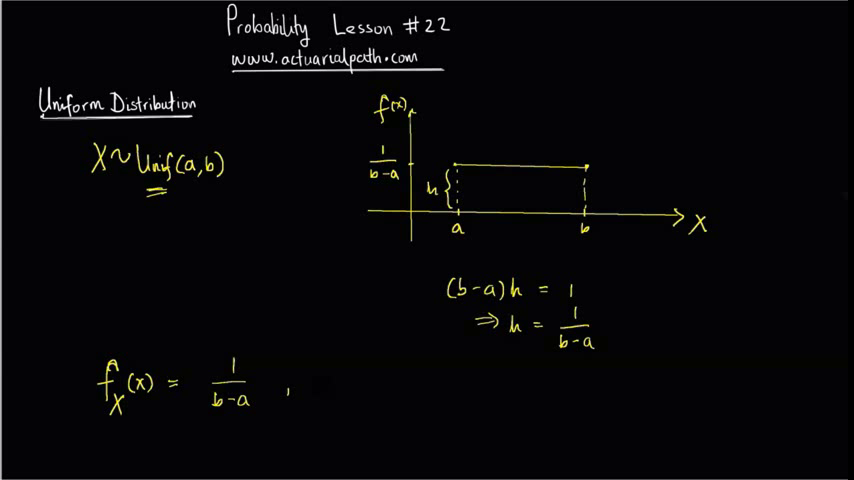 Probability Lesson #22
www.actuarialpath.com
Uniform Distribution
X ~ Unif(a,b)
f(x)
1/(b-a)
h {
a b X
(b-a)h = 1
⇒ h = 1/(b-a)
f_X(x) = 1/(b-a) ,